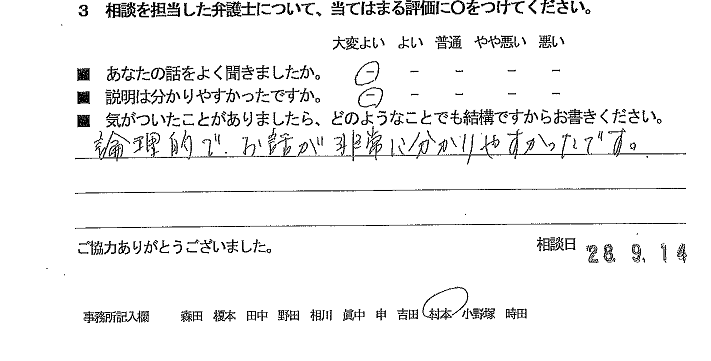 3 相談を担当した弁護士について、当てはまる評価に〇をつけてください。
大変よい よい 普通 やや悪い 悪い
■ あなたの話をよく聞きましたか。 － － － － －
■ 説明は分かりやすかったですか。 － － － － －
■ 気がついたことがありましたら、どのようなことでも結構ですからお書きください。
論理的で、お話が非常に分かりやすかったです。
ご協力ありがとうございました。 相談日 28. 9. 14
事務所記入欄 森田 榎本 田中 野田 相川 眞中 申 吉田 村本 小野塚 時田